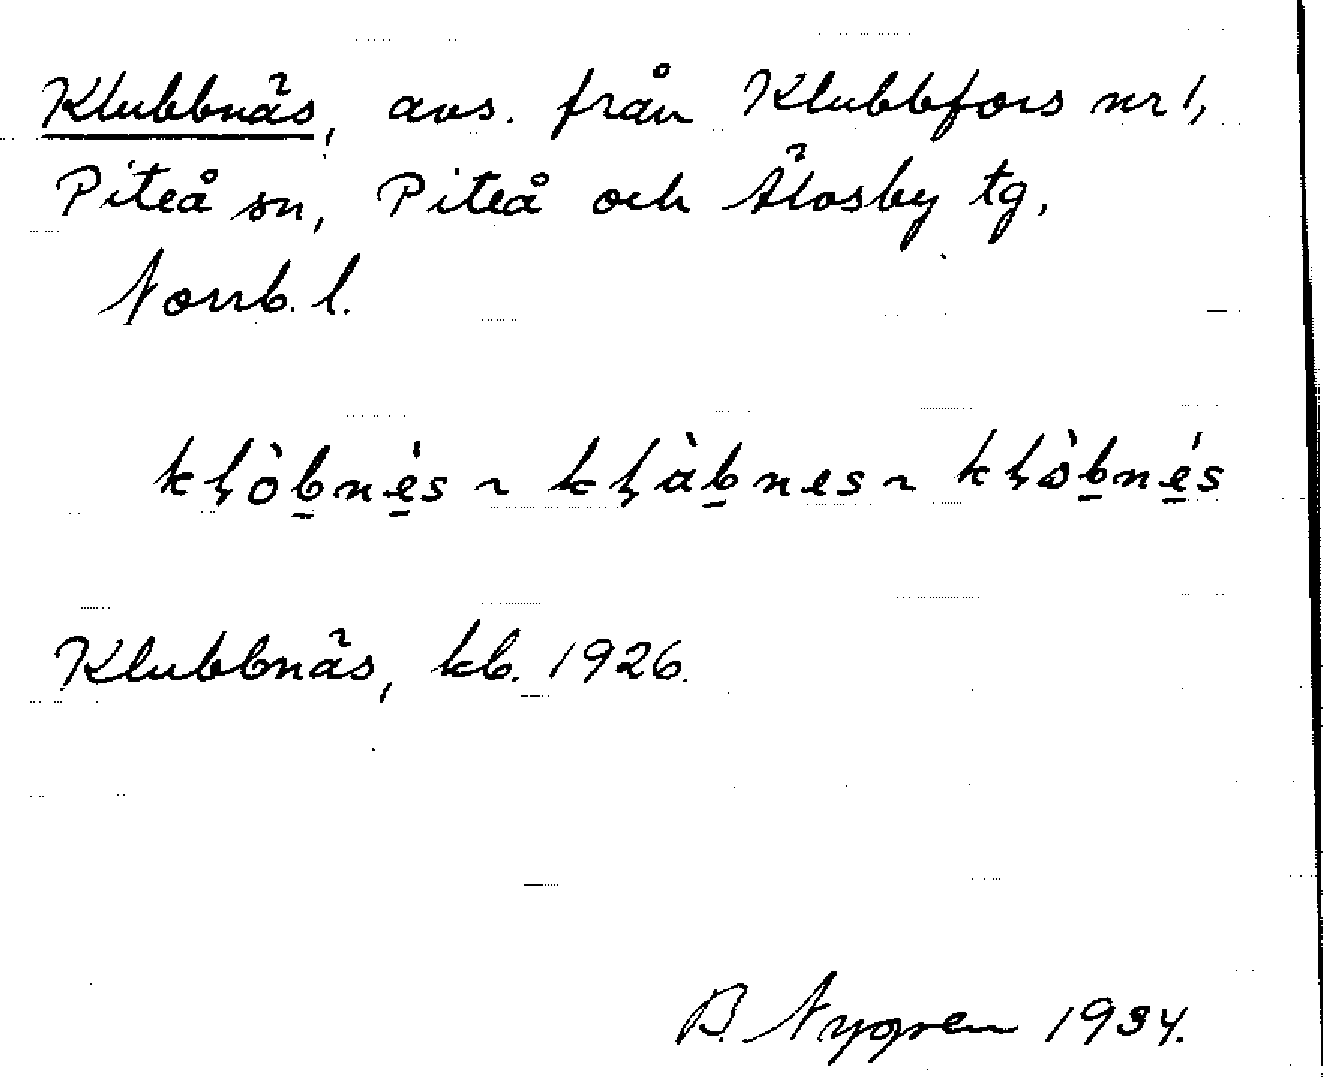 Klubbnäs, avs. från Klubbfors nr 1,
Piteå sn, Piteå och Älvsby tg,
Norrb. l.
kḷòb̲né̲s ~ kḷàb̲nes ~ kḷɔ̀b̲né̲s
Klubbnäs, kb. 1926.
B. Nygren 1934.